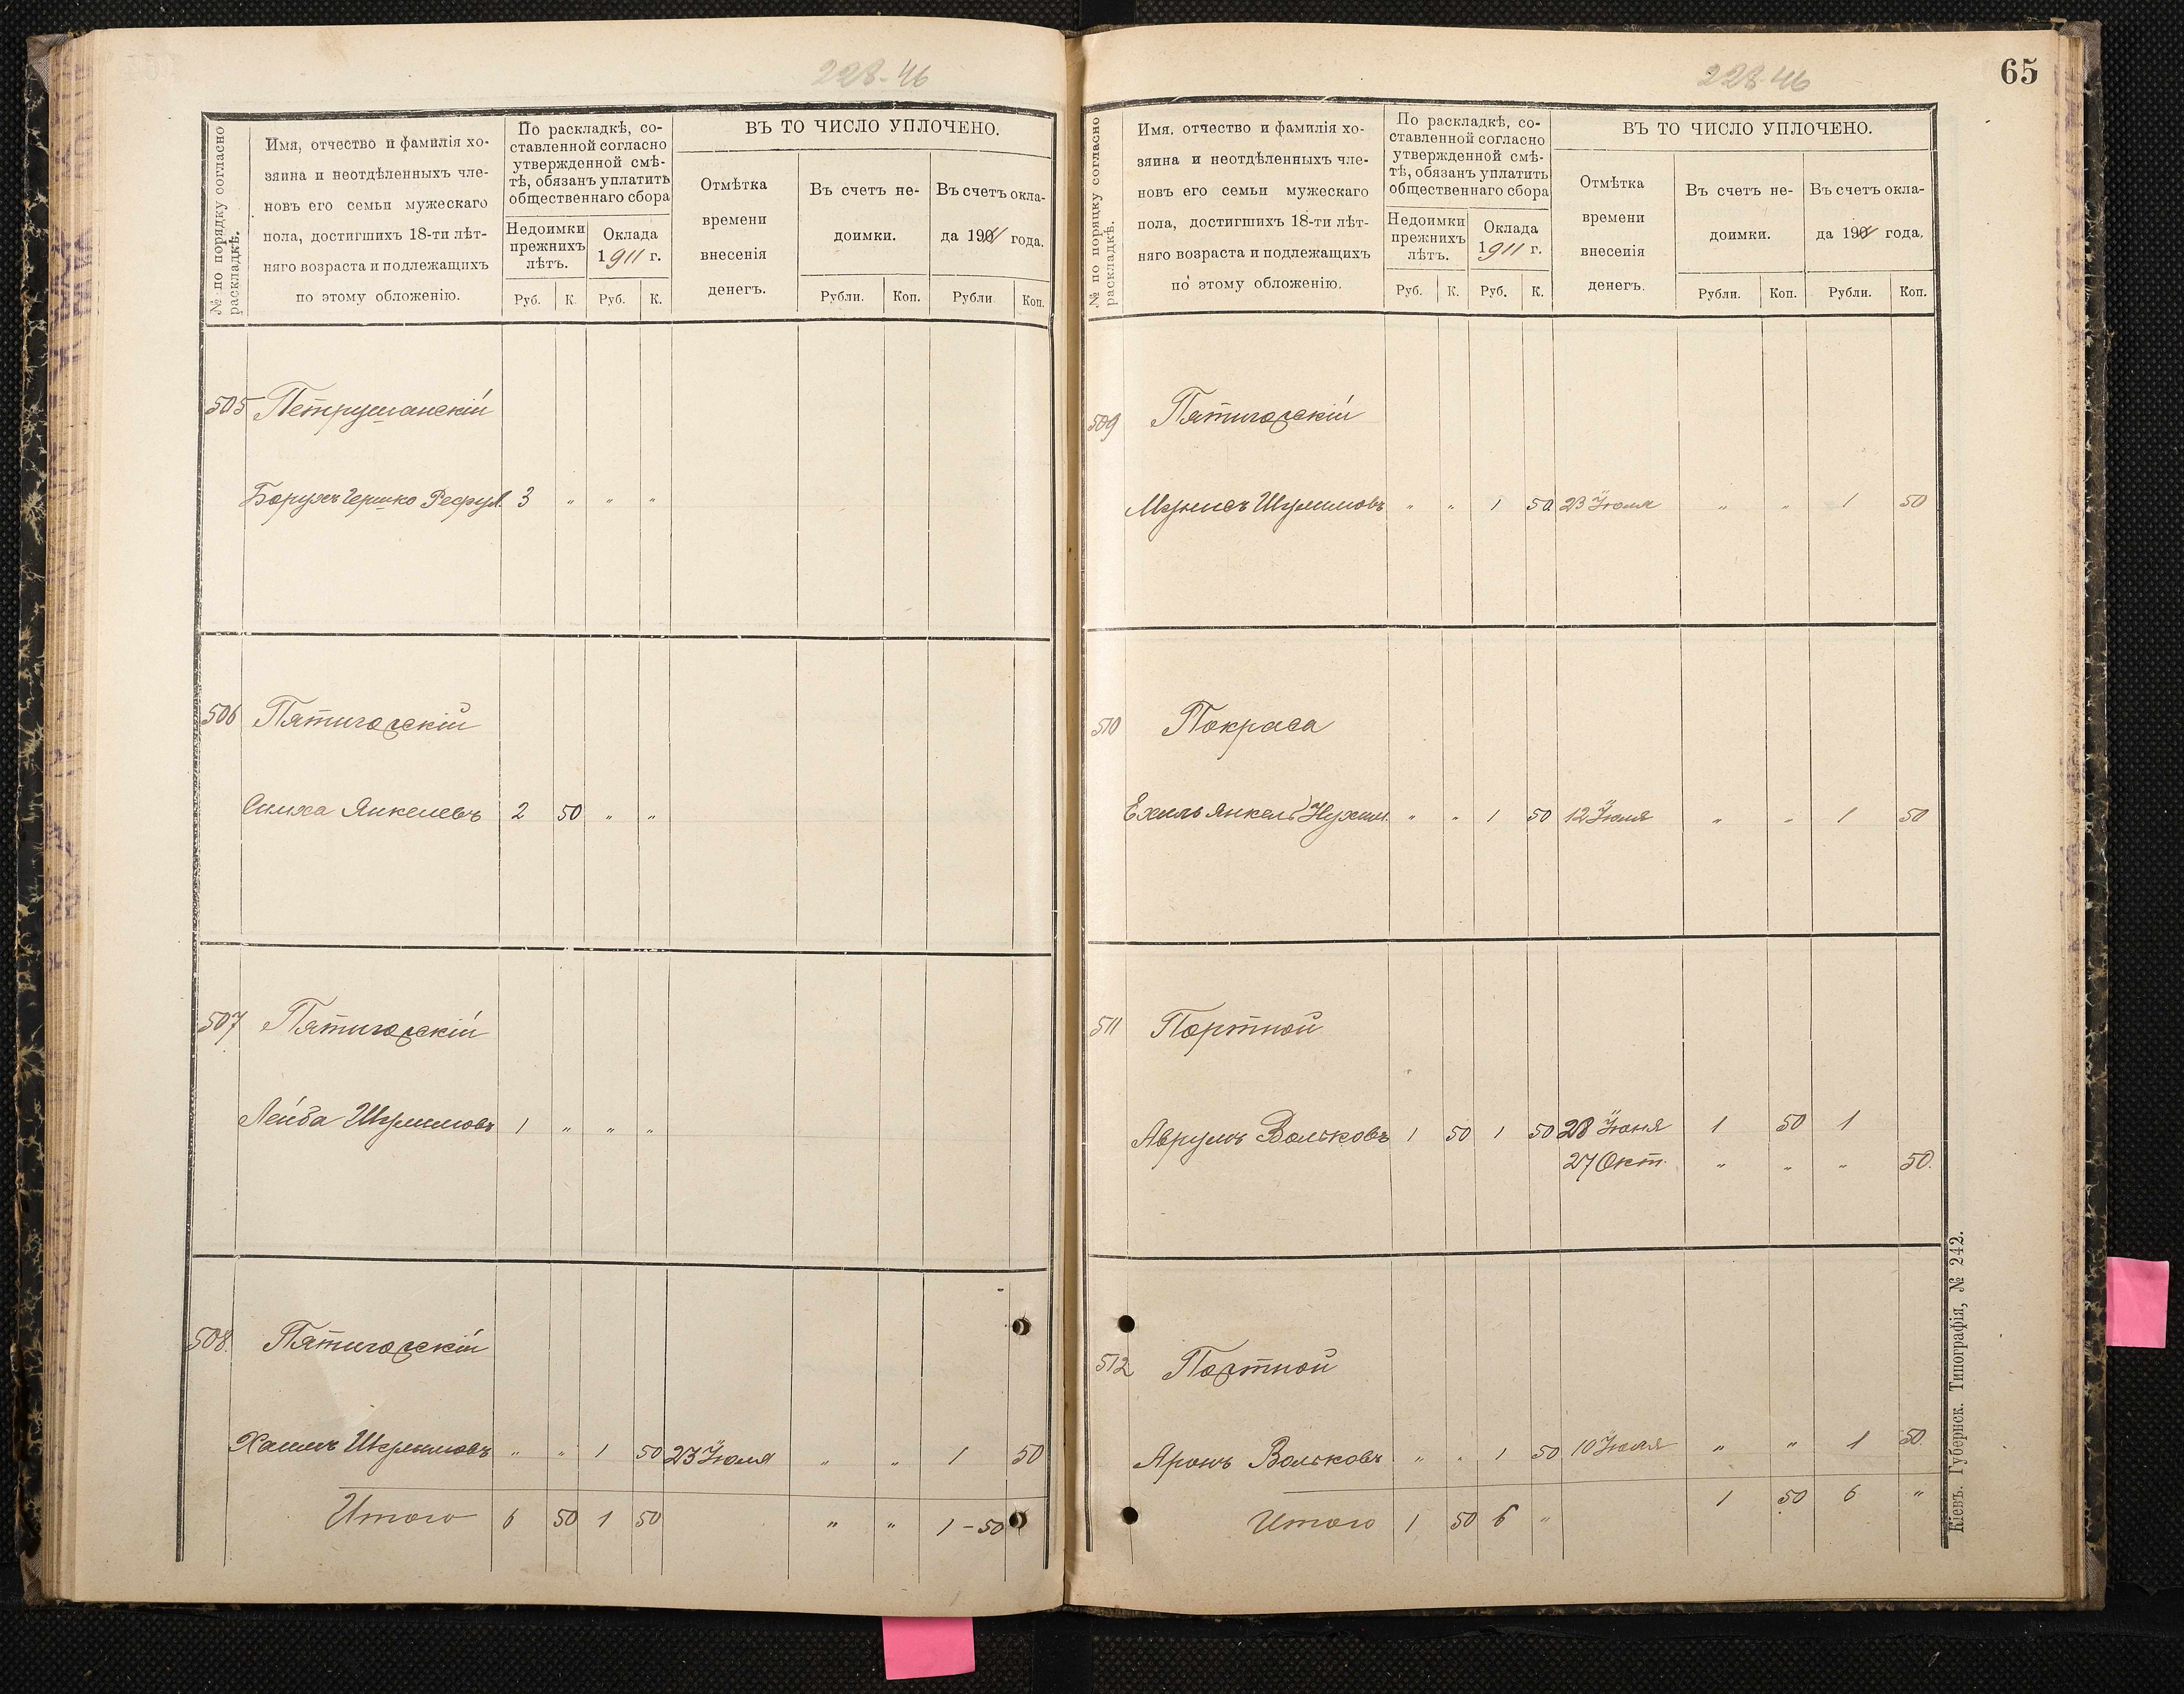 228-46
№ по порядку согласно раскладкѣ.
Имя, отчество и фамилія хо-
зяина и неотдѣленныхъ чле-
новъ его семьи мужескаго
пола, достигшихъ 18-ти лѣт-
няго возраста и подлежащихъ
по этому обложенію.
По раскладкѣ, со-
ставленной согласно
утвержденной смѣ-
тѣ, обязанъ уплатить
общественнаго сбора
Недоимки
прежнихъ
лѣтъ.
Оклада
1911 г.
Руб. К. Руб. К.
ВЪ ТО ЧИСЛО УПЛОЧЕНО.
Отмѣтка
времени
внесенія
денегъ.
Въ счетъ не-
доимки.
Въ счетъ окла-
да 190 года.
Рубли. Коп. Рубли. Коп.
505 Петрушанскій
Борухъ Гершко 3 " " "
506 Пятигорскій
Симха Янкелевъ 2 50 " "
507 Пятигорскій
Лейба Шулимовъ 1 " " "
508. Пятигорскій
Хаимъ Шулимовъ " " 1 50 23 Іюля " " 1 50
Итого 6 50 1 50 " " 1-50
228-46
65
№ по порядку согласно раскладкѣ.
Имя, отчество и фамилія хо-
зяина и неотдѣленныхъ чле-
новъ его семьи мужескаго
пола, достигшихъ 18-ти лѣт-
няго возраста и подлежащихъ
по этому обложенію.
По раскладкѣ, со-
ставленной согласно
утвержденной смѣ-
тѣ, обязанъ уплатить
общественнаго сбора
Недоимки
прежнихъ
лѣтъ.
Оклада
1911 г.
Руб. К. Руб. К.
ВЪ ТО ЧИСЛО УПЛОЧЕНО.
Отмѣтка
времени
внесенія
денегъ.
Въ счетъ не-
доимки.
Въ счетъ окла-
да 190 года.
Рубли. Коп. Рубли. Коп.
509 Пятигорскій
Шулимовъ " " 1 50 23 Іюля " " 1 50
510 Покраса
Ехиль Янкель Нухим. " " 1 50 12 Іюля " " 1 50
511 Портной
Аврумъ Вольковъ 1 50 1 50 28 Іюня 1 50 1
27 Окт. " " " 50.
512 Портной
Аронъ Вольковъ " " 1 50 10 Іюля " " 1 50
1 50 6 "
Итого 1 50 6 "
Кіевъ. Губернск. Типографія, № 242.